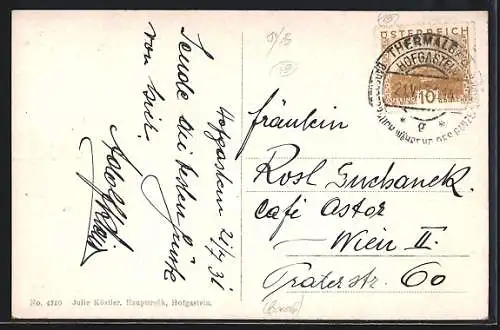 Hofgastein 21/7 31
Sende die besten Grüsse
von hier.
ÖSTERREICH
10
THERMALBAD
HOFGASTEIN
* g *
Fräulein
Rosl Suchanek
Café Astor
Wien II.
Praterstr. 60
No. 4710 Julie Köstler, Hauptregik, Hofgastein.